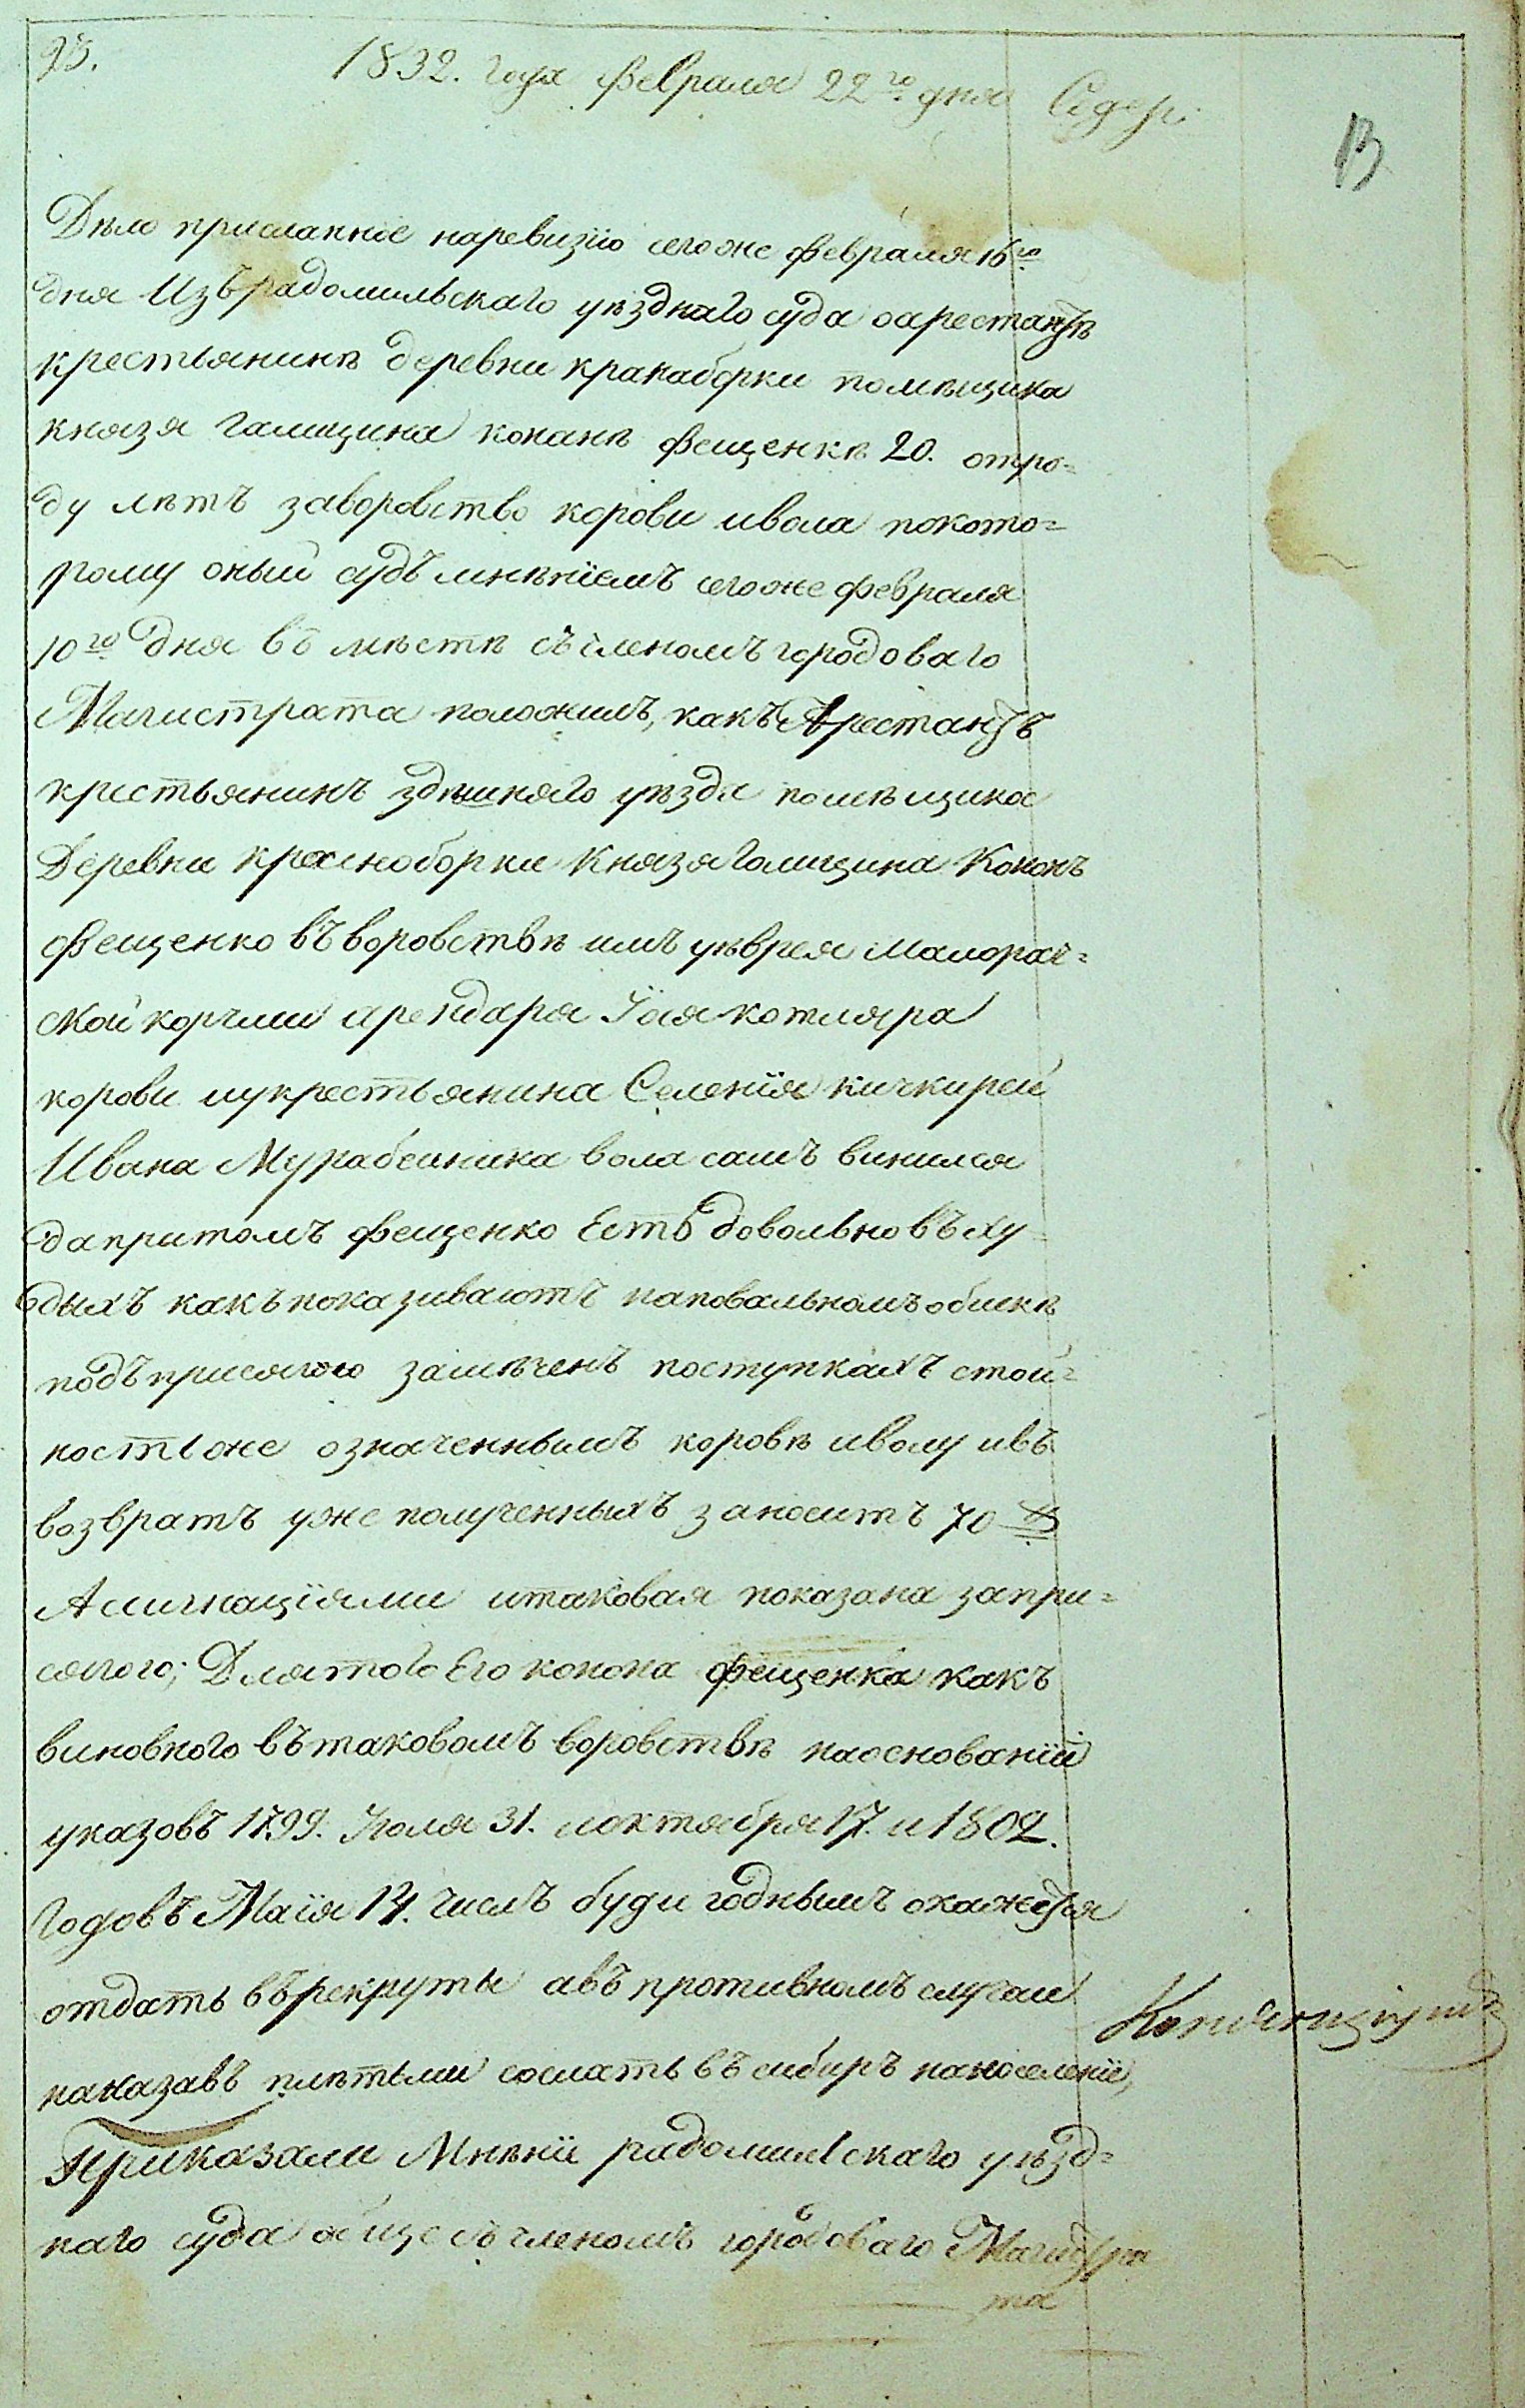 93.
1832. года февраля 22го дня Сѣдер:
13
Дѣло присланное наревизїю сегоже февраля 16го
дня Изъ радомильскаго уѣзднаго суда оарестантѣ
крестьянинѣ деревни кракаборки помѣщика
князя галицина конанѣ фещенкѣ 20. отро=
ду лѣтъ заворовство корови ивола покото=
рому оный судъ мнѣнїемъ сегоже февраля
10го дня вѣ мѣстѣ съчленомъ городоваго
Магистрата положилъ, какъ Арестантъ
крестьянинъ здѣшняго уѣзда помѣщика
Деревни красноборки Князя Голицина Кононъ
фещенко въворовствѣ имъ уѣврея Малорач=
ской корчми арендаря Іося котляра
корови иукрестьянина Селенїя кичкирей
Ивана Мурабейника вола самъ винился
да притомъ фещенко Есть довольно въ ху=
дыхъ какъ показиваютъ наповальномъ обискѣ
подъ присягою замѣченъ поступкахъ стои=
ностьже означеннымъ коровѣ иволу ивъ
возвратъ уже полученныхъ заноситъ 70 р
Ассигнацїями итаковая показана запри=
сягого; Для того Его конона фещенка какъ
виновного въ таковомъ воровствѣ наоснованїй
указовъ 1799. Іюля 31. иоктября 17. и 1802.
Годовъ Маїя 14. числъ буди годнымъ окажется
отдать въ рекруты авъ противномъ случаи
наказавъ плѣтьми сослать въ сибиръ напоселенїе,
Приказали Мнѣнїе радомильскаго уѣзд=
наго суда обще съ членомъ городоваго Магистра
та